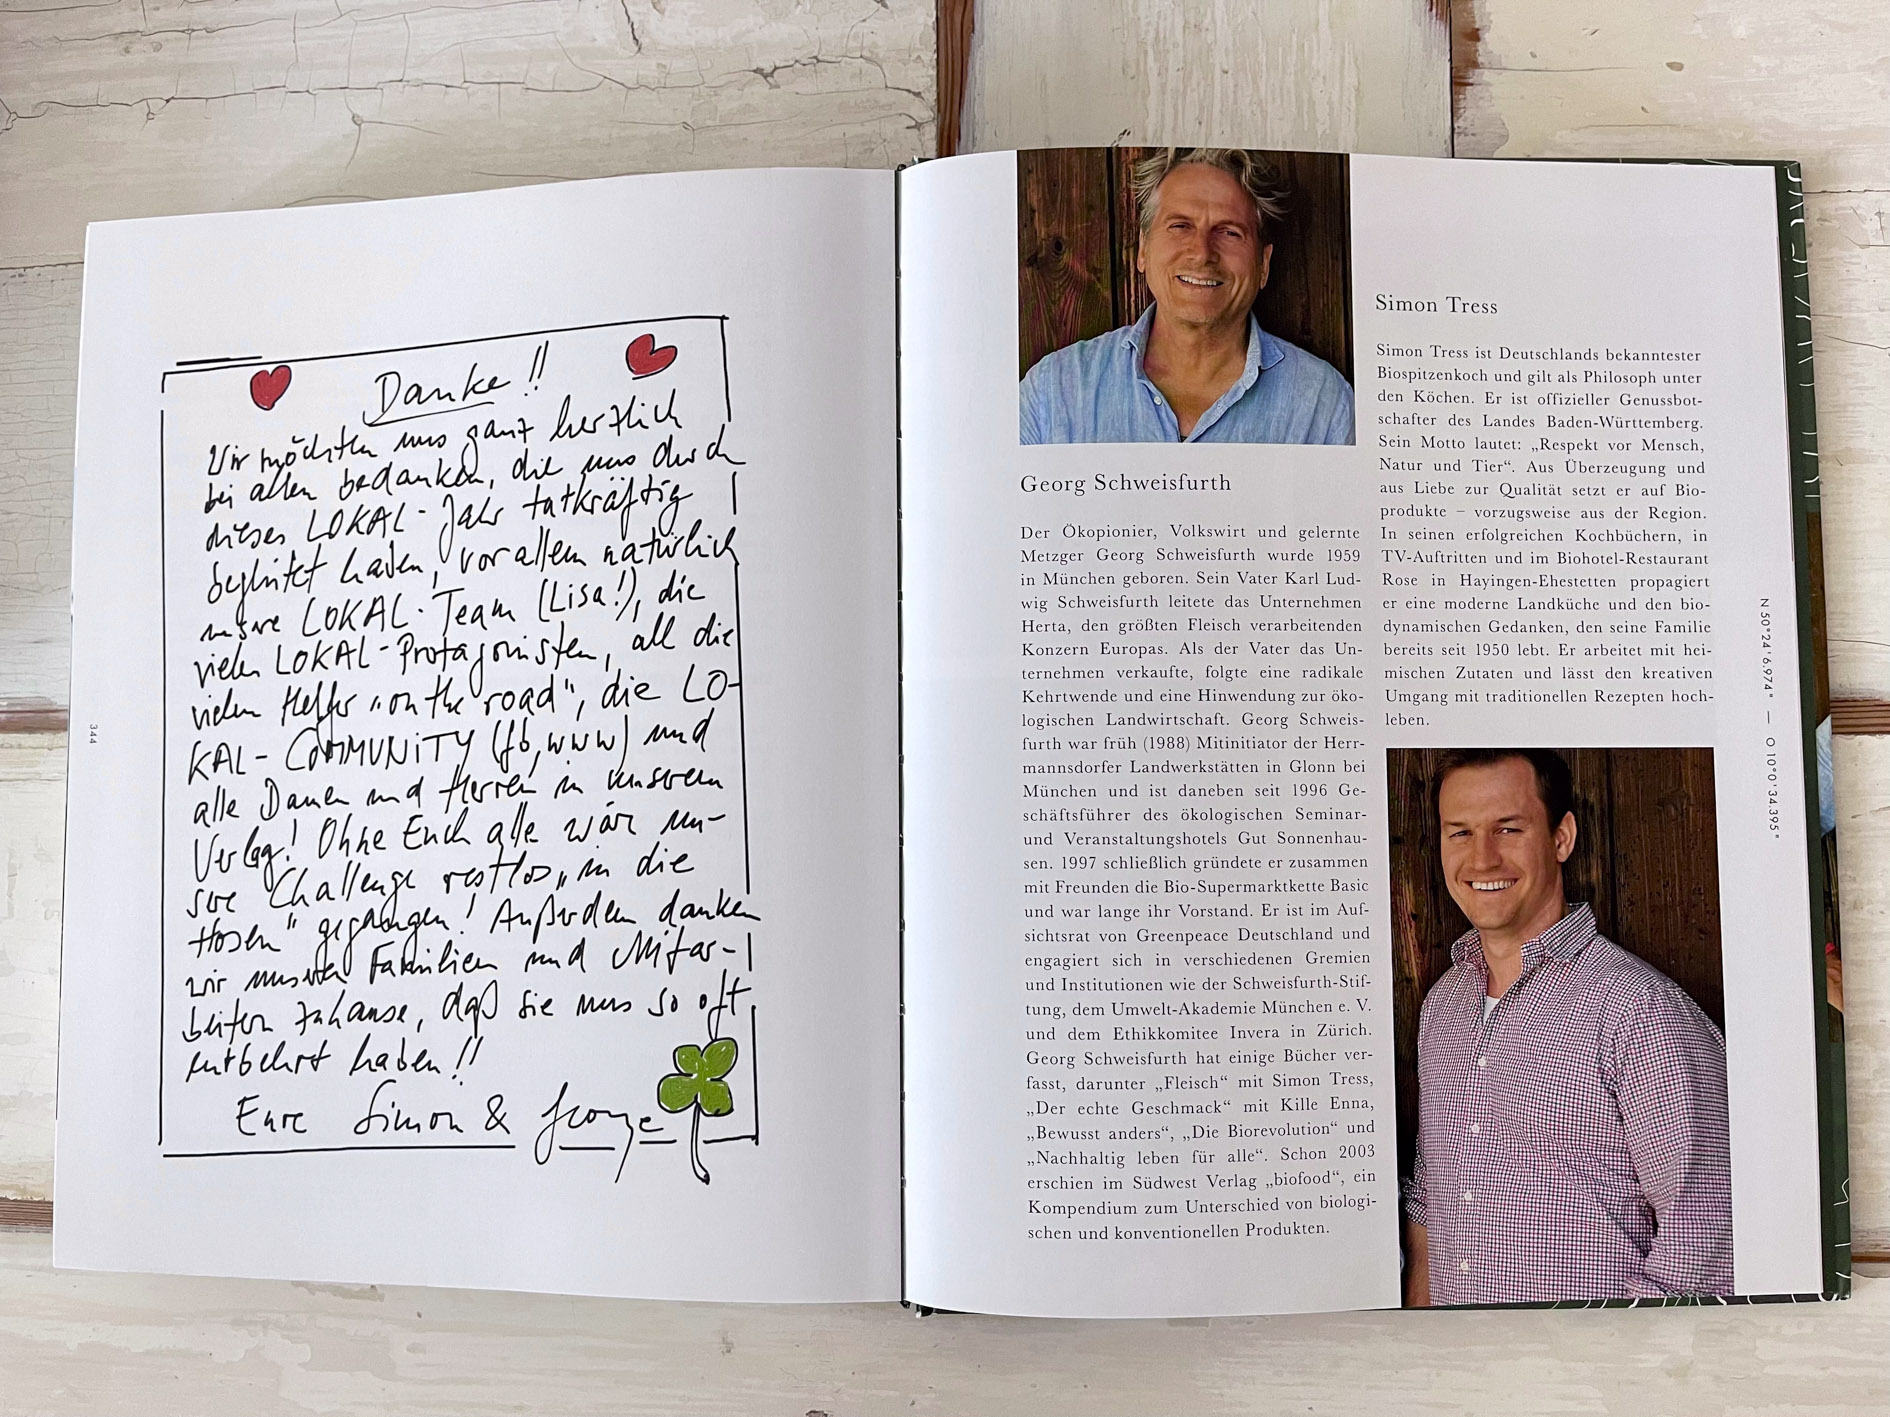 Danke!!
Wir möchten uns ganz herzlich
bei allen bedanken, die uns durch
dieses LOKAL-Jahr tatkräftig
begleitet haben, vor allem natürlich
unsere LOKAL-Team (Lisa!), die
vielen LOKAL-Protagonisten, all die
vielen Helfer "on the road", die LO-
KAL-COMMUNITY (fb, www) und
alle Damen und Herren in unserem
Verlag! Ohne Euch alle wär un-
sre Challenge restlos „in die
Hosen" gegangen! Außerdem danken
wir unseren Familien und Mitar-
beitern zuhause, daß sie uns so oft
entbehrt haben!!
Eure Simon & George
344
Georg Schweisfurth
Der Ökopionier, Volkswirt und gelernte
Metzger Georg Schweisfurth wurde 1959
in München geboren. Sein Vater Karl Lud-
wig Schweisfurth leitete das Unternehmen
Herta, den größten Fleisch verarbeitenden
Konzern Europas. Als der Vater das Un-
ternehmen verkaufte, folgte eine radikale
Kehrtwende und eine Hinwendung zur öko-
logischen Landwirtschaft. Georg Schweis-
furth war früh (1988) Mitinitiator der Herr-
mannsdorfer Landwerkstätten in Glonn bei
München und ist daneben seit 1996 Ge-
schäftsführer des ökologischen Seminar-
und Veranstaltungshotels Gut Sonnenhau-
sen. 1997 schließlich gründete er zusammen
mit Freunden die Bio-Supermarktkette Basic
und war lange ihr Vorstand. Er ist im Auf-
sichtsrat von Greenpeace Deutschland und
engagiert sich in verschiedenen Gremien
und Institutionen wie der Schweisfurth-Stif-
tung, dem Umwelt-Akademie München e. V.
und dem Ethikkomitee Invera in Zürich.
Georg Schweisfurth hat einige Bücher ver-
fasst, darunter „Fleisch“ mit Simon Tress,
„Der echte Geschmack“ mit Kille Enna,
„Bewusst anders“, „Die Biorevolution“ und
„Nachhaltig leben für alle“. Schon 2003
erschien im Südwest Verlag „biofood“, ein
Kompendium zum Unterschied von biologi-
schen und konventionellen Produkten.
Simon Tress
Simon Tress ist Deutschlands bekanntester
Biospitzenkoch und gilt als Philosoph unter
den Köchen. Er ist offizieller Genussbot-
schafter des Landes Baden-Württemberg.
Sein Motto lautet: „Respekt vor Mensch,
Natur und Tier“. Aus Überzeugung und
aus Liebe zur Qualität setzt er auf Bio-
produkte – vorzugsweise aus der Region.
In seinen erfolgreichen Kochbüchern, in
TV-Auftritten und im Biohotel-Restaurant
Rose in Hayingen-Ehestetten propagiert
er eine moderne Landküche und den bio-
dynamischen Gedanken, den seine Familie
bereits seit 1950 lebt. Er arbeitet mit hei-
mischen Zutaten und lässt den kreativen
Umgang mit traditionellen Rezepten hoch-
leben.
N 50°24'6.974" — O 10°0'34.395"